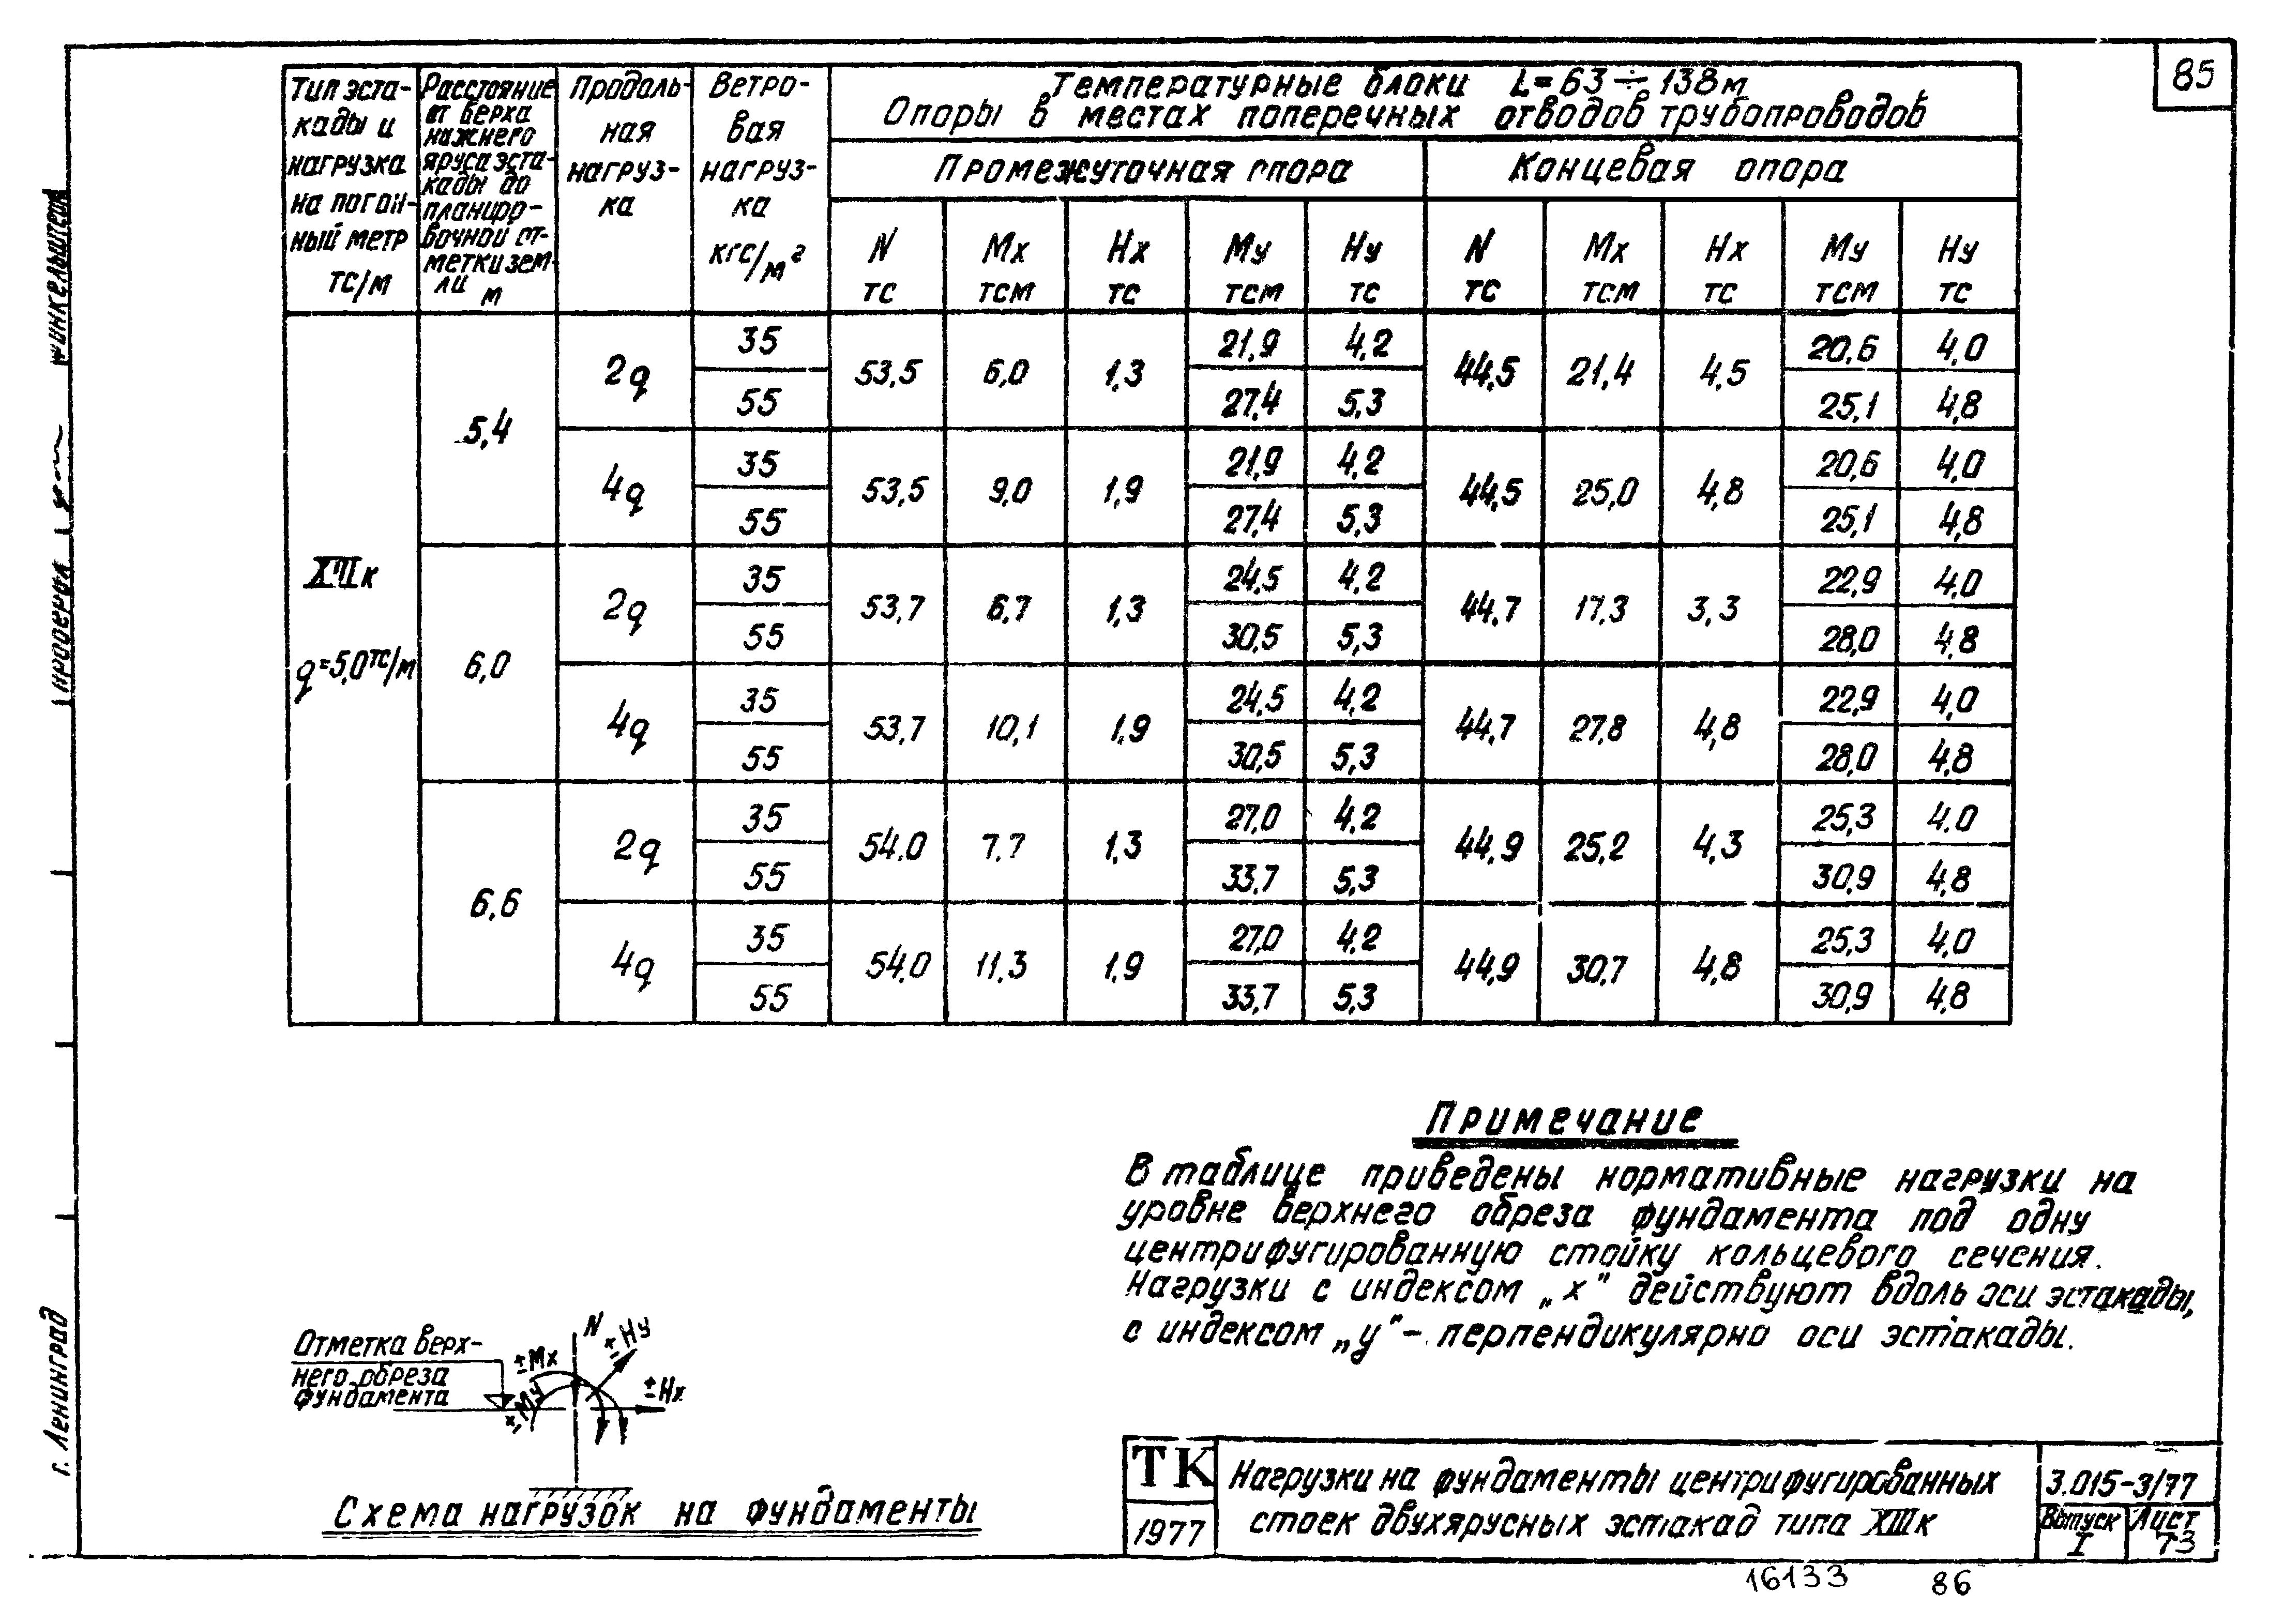 85
Тип эста-
кады и
нагрузка
на погон-
ный метр
тс/м
Расстояние
от верха
нижнего
яруса эста-
кады до
планиро-
вочной от-
метки зем-
ли м
Продоль-
ная
нагруз-
ка
Ветро-
вая
нагруз-
ка
кгс/м²
Температурные блоки L=63÷138м
Опоры в местах поперечных отводов трубопроводов
Промежуточная опора Концевая опора
N тс Mx тсм Hx тс Му тсм Ну тс N тс Mx тсм Hx тс Му тсм Ну тс
XIIIк
q=5,0тс/м
5,4 2q 35 53,5 6,0 1,3 21,9 4,2 44,5 21,4 4,5 20,6 4,0
55 27,4 5,3 25,1 4,8
4q 35 53,5 9,0 1,9 21,9 4,2 44,5 25,0 4,8 20,6 4,0
55 27,4 5,3 25,1 4,8
6,0 2q 35 53,7 6,7 1,3 24,5 4,2 44,7 17,3 3,3 22,9 4,0
55 30,5 5,3 28,0 4,8
4q 35 53,7 10,1 1,9 24,5 4,2 44,7 27,8 4,8 22,9 4,0
55 30,5 5,3 28,0 4,8
6,6 2q 35 54,0 7,7 1,3 27,0 4,2 44,9 25,2 4,3 25,3 4,0
55 33,7 5,3 30,9 4,8
4q 35 54,0 11,3 1,9 27,0 4,2 44,9 30,7 4,8 25,3 4,0
55 33,7 5,3 30,9 4,8
Примечание
В таблице приведены нормативные нагрузки на
уровне верхнего обреза фундамента под одну
центрифугированную стойку кольцевого сечения.
Нагрузки с индексом „х" действуют вдоль оси эстакады,
с индексом „у"- перпендикулярно оси эстакады.
Отметка верх-
него обреза
фундамента
N
±Ну
±Мх
±Му
±Нх
Схема нагрузок на фундаменты
ТК
1977
Нагрузки на фундаменты центрифугированных
стоек двухярусных эстакад типа XIIIк
3.015-3/77
Выпуск
I
Лист
73
16133 86
г. Ленинград
Проверил